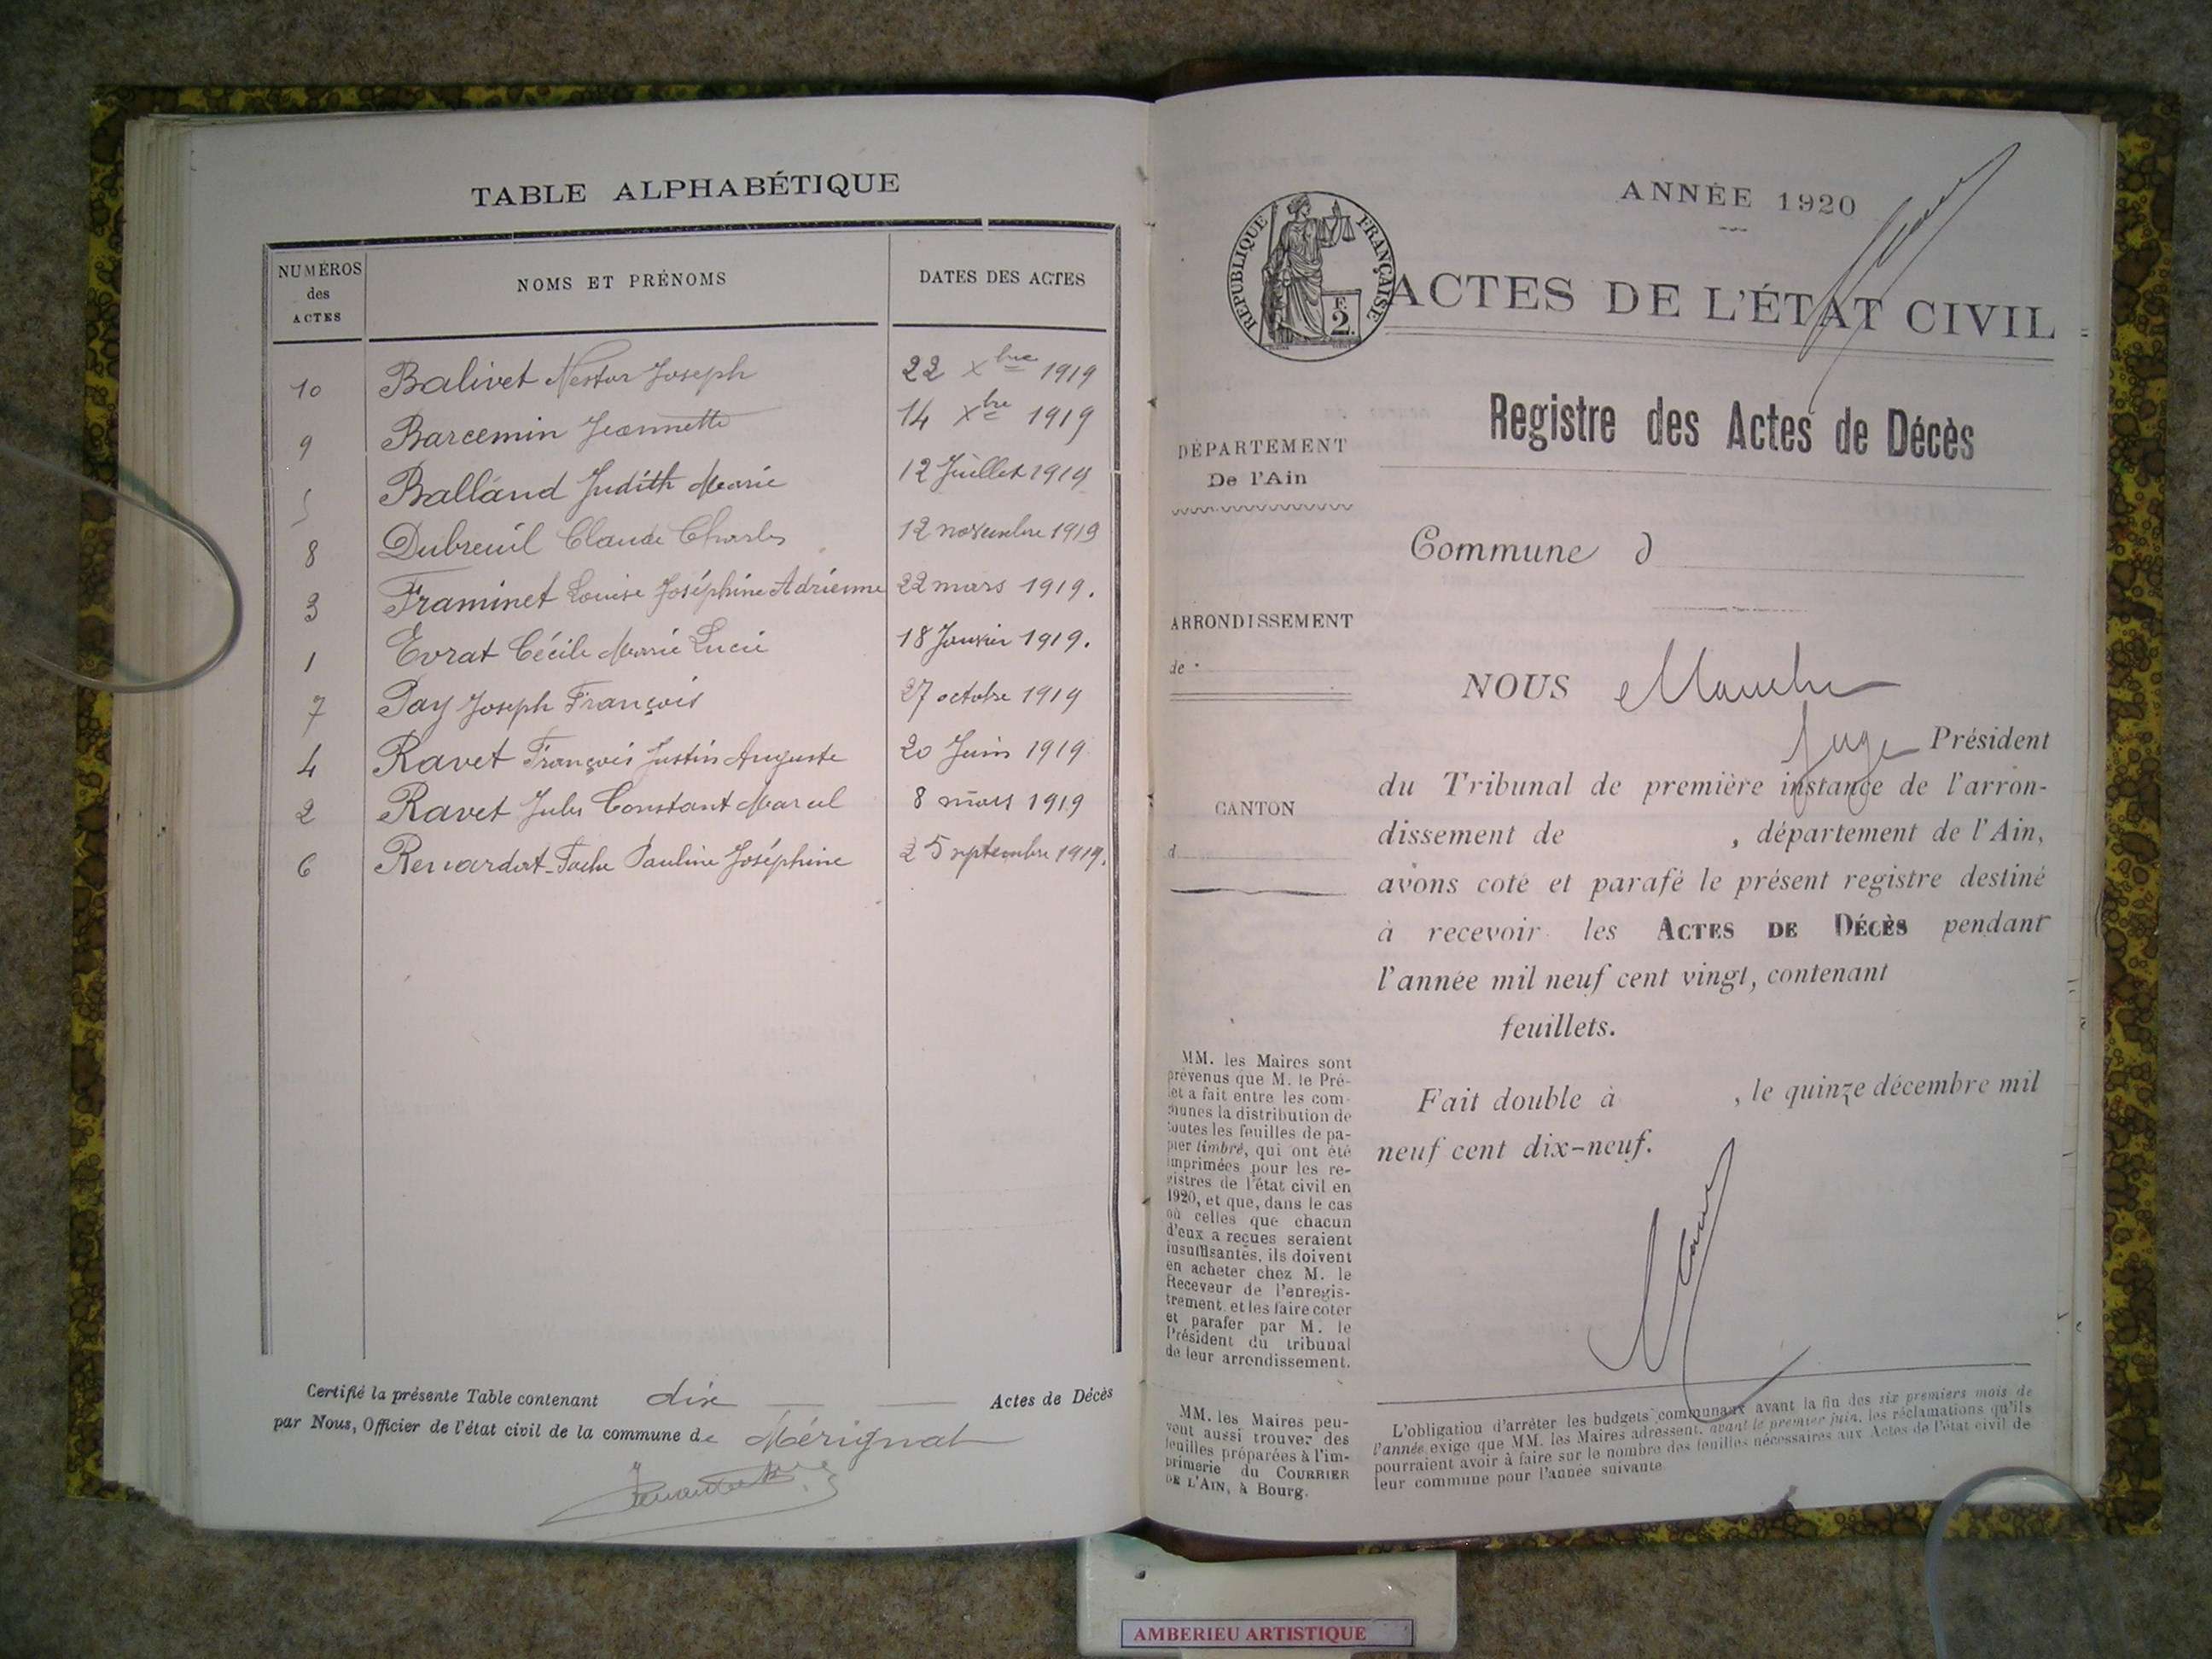 TABLE ALPHABÉTIQUE
NUMÉROS des ACTES NOMS ET PRÉNOMS DATES DES ACTES
10 Balivet Nestor Joseph 22 Xbre 1919
9 Barcemin Jeannette 14 Xbre 1919
5 Balland Judith Marie 12 Juillet 1919
8 Dubreuil Claude Charles 12 novembre 1919
3 Framinet Louise Joséphine Adrienne 22 mars 1919.
1 Evrat Cécile Marie Lucie 18 Janvier 1919.
7 Pay Joseph François 27 octobre 1919
4 Ravet François Justin Auguste 20 Juin 1919
2 Ravet Jules Constant Marcel 8 mars 1919
6 Renardat-Fache Pauline Joséphine 25 septembre 1919.
Certifié la présente Table contenant dix Actes de Décès
par Nous, Officier de l'état civil de la commune de Mérignat
ANNÉE 1920
RÉPUBLIQUE FRANÇAISE
F.
2.
ACTES DE L'ÉTAT CIVIL
Registre des Actes de Décès
DÉPARTEMENT
De l'Ain
Commune d
ARRONDISSEMENT
de
CANTON
d
NOUS
Juge Président
du Tribunal de première instance de l'arron-
dissement de , département de l'Ain,
avons coté et parafé le présent registre destiné
à recevoir les ACTES DE DÉCÈS pendant
l'année mil neuf cent vingt, contenant
feuillets.
Fait double à , le quinze décembre mil
neuf cent dix-neuf.
MM. les Maires sont
prévenus que M. le Pré-
fet a fait entre les com-
munes la distribution de
toutes les feuilles de pa-
pier timbré, qui ont été
imprimées pour les re-
gistres de l'état civil en
1920, et que, dans le cas
où celles que chacun
d'eux a reçues seraient
insuffisantes, ils doivent
en acheter chez M. le
Receveur de l'enregis-
trement, et les faire coter
et parafer par M. le
Président du tribunal
de leur arrondissement.
MM. les Maires peu-
vent aussi trouver des
feuilles préparées à l'im-
primerie du COURRIER
DE L'AIN, à Bourg.
L'obligation d'arrêter les budgets communaux avant la fin des six premiers mois de
l'année exige que MM. les Maires adressent, avant le premier juin, les réclamations qu'ils
pourraient avoir à faire sur le nombre des feuilles nécessaires aux Actes de l'état civil de
leur commune pour l'année suivante.
AMBERIEU ARTISTIQUE